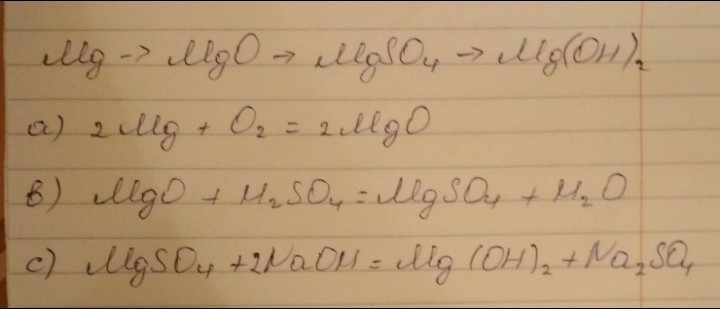 Mg -> MgO → MgSO₄ → Mg(OH)₂
a) 2Mg + O₂ = 2MgO
b) MgO + H₂SO₄ = MgSO₄ + H₂O
c) MgSO₄ + 2NaOH = Mg(OH)₂ + Na₂SO₄